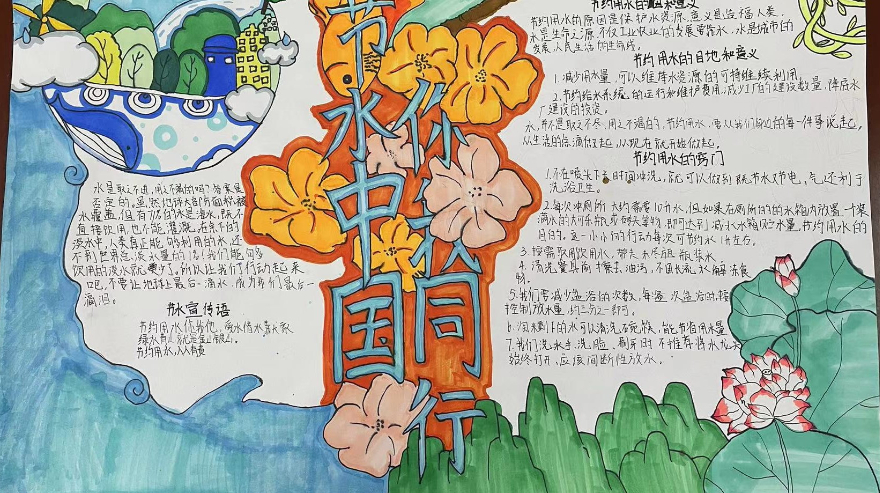 节水中国
你我同行
水是取之不进,用之不竭的吗?答案是
否定的。虽然地球大部有面积被
水覆盖,但有
直接饮用,也不能灌溉。在余下的
淡水中,人类真正能够利用的水,还
饮用的淡水就更少了。所以让我们行动起来
吧,不要让地球上最后一滴水,成为我们最后一
滴泪。
节水宣传语
节约用水,人人有责
节约用水的原因和意义
节约用水的原因是保护水资源,意义是造福人类,
水是生命之源,不仅工业农业的发展要靠水,水是城市的
发展,人民生活的生命线。
节约用水的目地和意义
1.减少用水量,可以维持水资源的可持续利用。
2.节约给水系统的运行和维护费用,减少工厂的建设数量,降后水
厂建设的投资。
水,并不是取之不尽,用之不竭的,节约用水,要从我们身边的每一件事说起,
从生活的点滴做起,从现在就开始做起。
节约用水的窍门
1.不在喷头下长时间冲洗,就可以做到既节水又节电,气,还利于
洗浴卫生。
2.每次冲厕所大约需要10市水,但如果在厕所的的水箱内放置一个装
满水的大可乐瓶或砖头等物,即可达到减小水箱贮水量,节约用水的
目的。这一小小的行动每次可节约水1升左右。
3.按需取用饮用水,带走未尽瓶瓶装水
4.清洗餐具前擦去油污,不用长流水解冻食
物。
5.我们要减少盆浴的次数,每逢次盆浴时,
控制放水量,约三分之一即可。
6.淘米剩下的水可以清洗碗筷,能节省用水量
7.我们洗水手,洗脸,刷牙时不推荐将水龙头
始终打开,应该间断性放水。